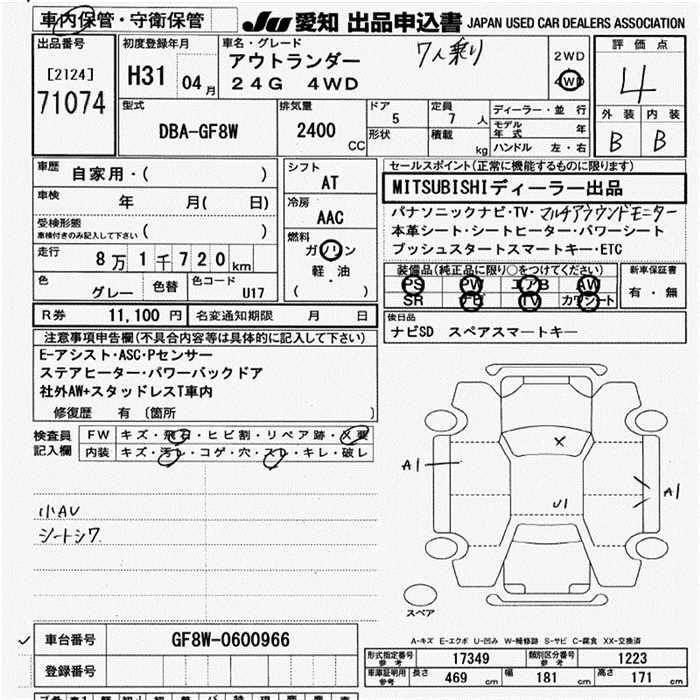 車内保管・守衛保管 JU 愛知 出品申込書 JAPAN USED CAR DEALERS ASSOCIATION
出品番号 初度登録年月 車名・グレード 7人乗り 2WD 評価点
[2124] H31 04月 アウトランダー 4WD 4
71074 24G 4WD 外装 内装
型式 排気量 ドア 定員 ディーラー・並行 B B
DBA-GF8W 2400 CC 5 7人 モデル年式 年
形状 積載 kg ハンドル 左・右
車歴 自家用・( ) シフト AT セールスポイント(正常に機能するものに限ります)
車検 年 月( 日) 冷房 AAC MITSUBISHIディーラー出品
受検形態 ( ) パナソニックナビ・TV・マルチアラウンドモニター
車検付きのみ記入して下さい 燃料 本革シート・シートヒーター・パワーシート
走行 8万1千720km ガソリン プッシュスタートスマートキー・ETC
色 グレー 色替 色コード U17 軽・油 ( ) 装備品(純正品に限り○をつけてください) 新車保証書
PS PW エアB AW 有・無
SR ナビ TV カワシート
R券 11,100円 名変通知期限 月 日 後日品
注意事項申告欄(不具合内容等は具体的に記入して下さい) ナビSD スペアスマートキー
E-アシスト・ASC・Pセンサー
ステアヒーター・パワーバックドア
社外AW+スタッドレスT車内
修復歴 有 〔箇所 〕
検査員 FW キズ・飛石・ヒビ割・リペア跡・X要
記入欄 内装 キズ・汚レ・コゲ・穴・スレ・キレ・破レ
X
A1 A1
U1
小AU
シートシワ
スペア
A-キズ E-エクボ U-凹み W-補修跡 S-サビ C-腐食 XX-交換済
車台番号 GF8W-0600966 形式指定番号 参考 17349 類別区分番号 参考 1223
登録番号 車庫証明用 参考 長さ 469cm 幅 181cm 高さ 171cm